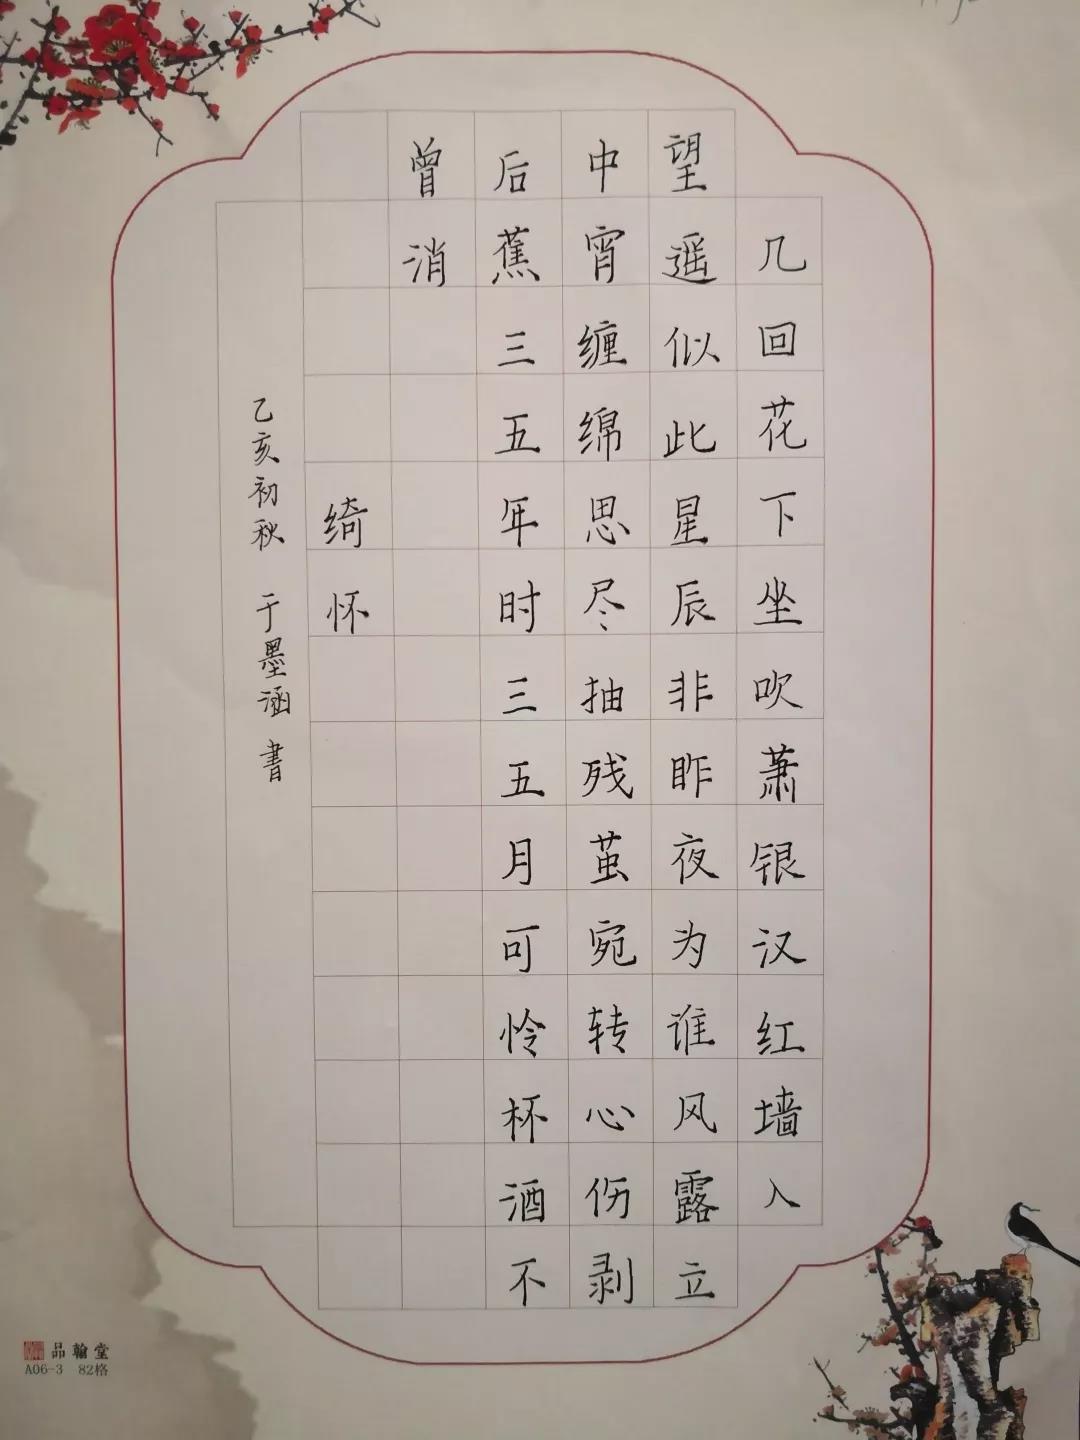 几回花下坐吹萧银汉红墙入
望遥似此星辰非昨夜为谁风露立
中宵缠绵思尽抽残茧宛转心伤剥
后蕉三五年时三五月可怜杯酒不
曾消
绮怀
乙亥初秋 于墨涵 書
品翰堂
A06-3 82格